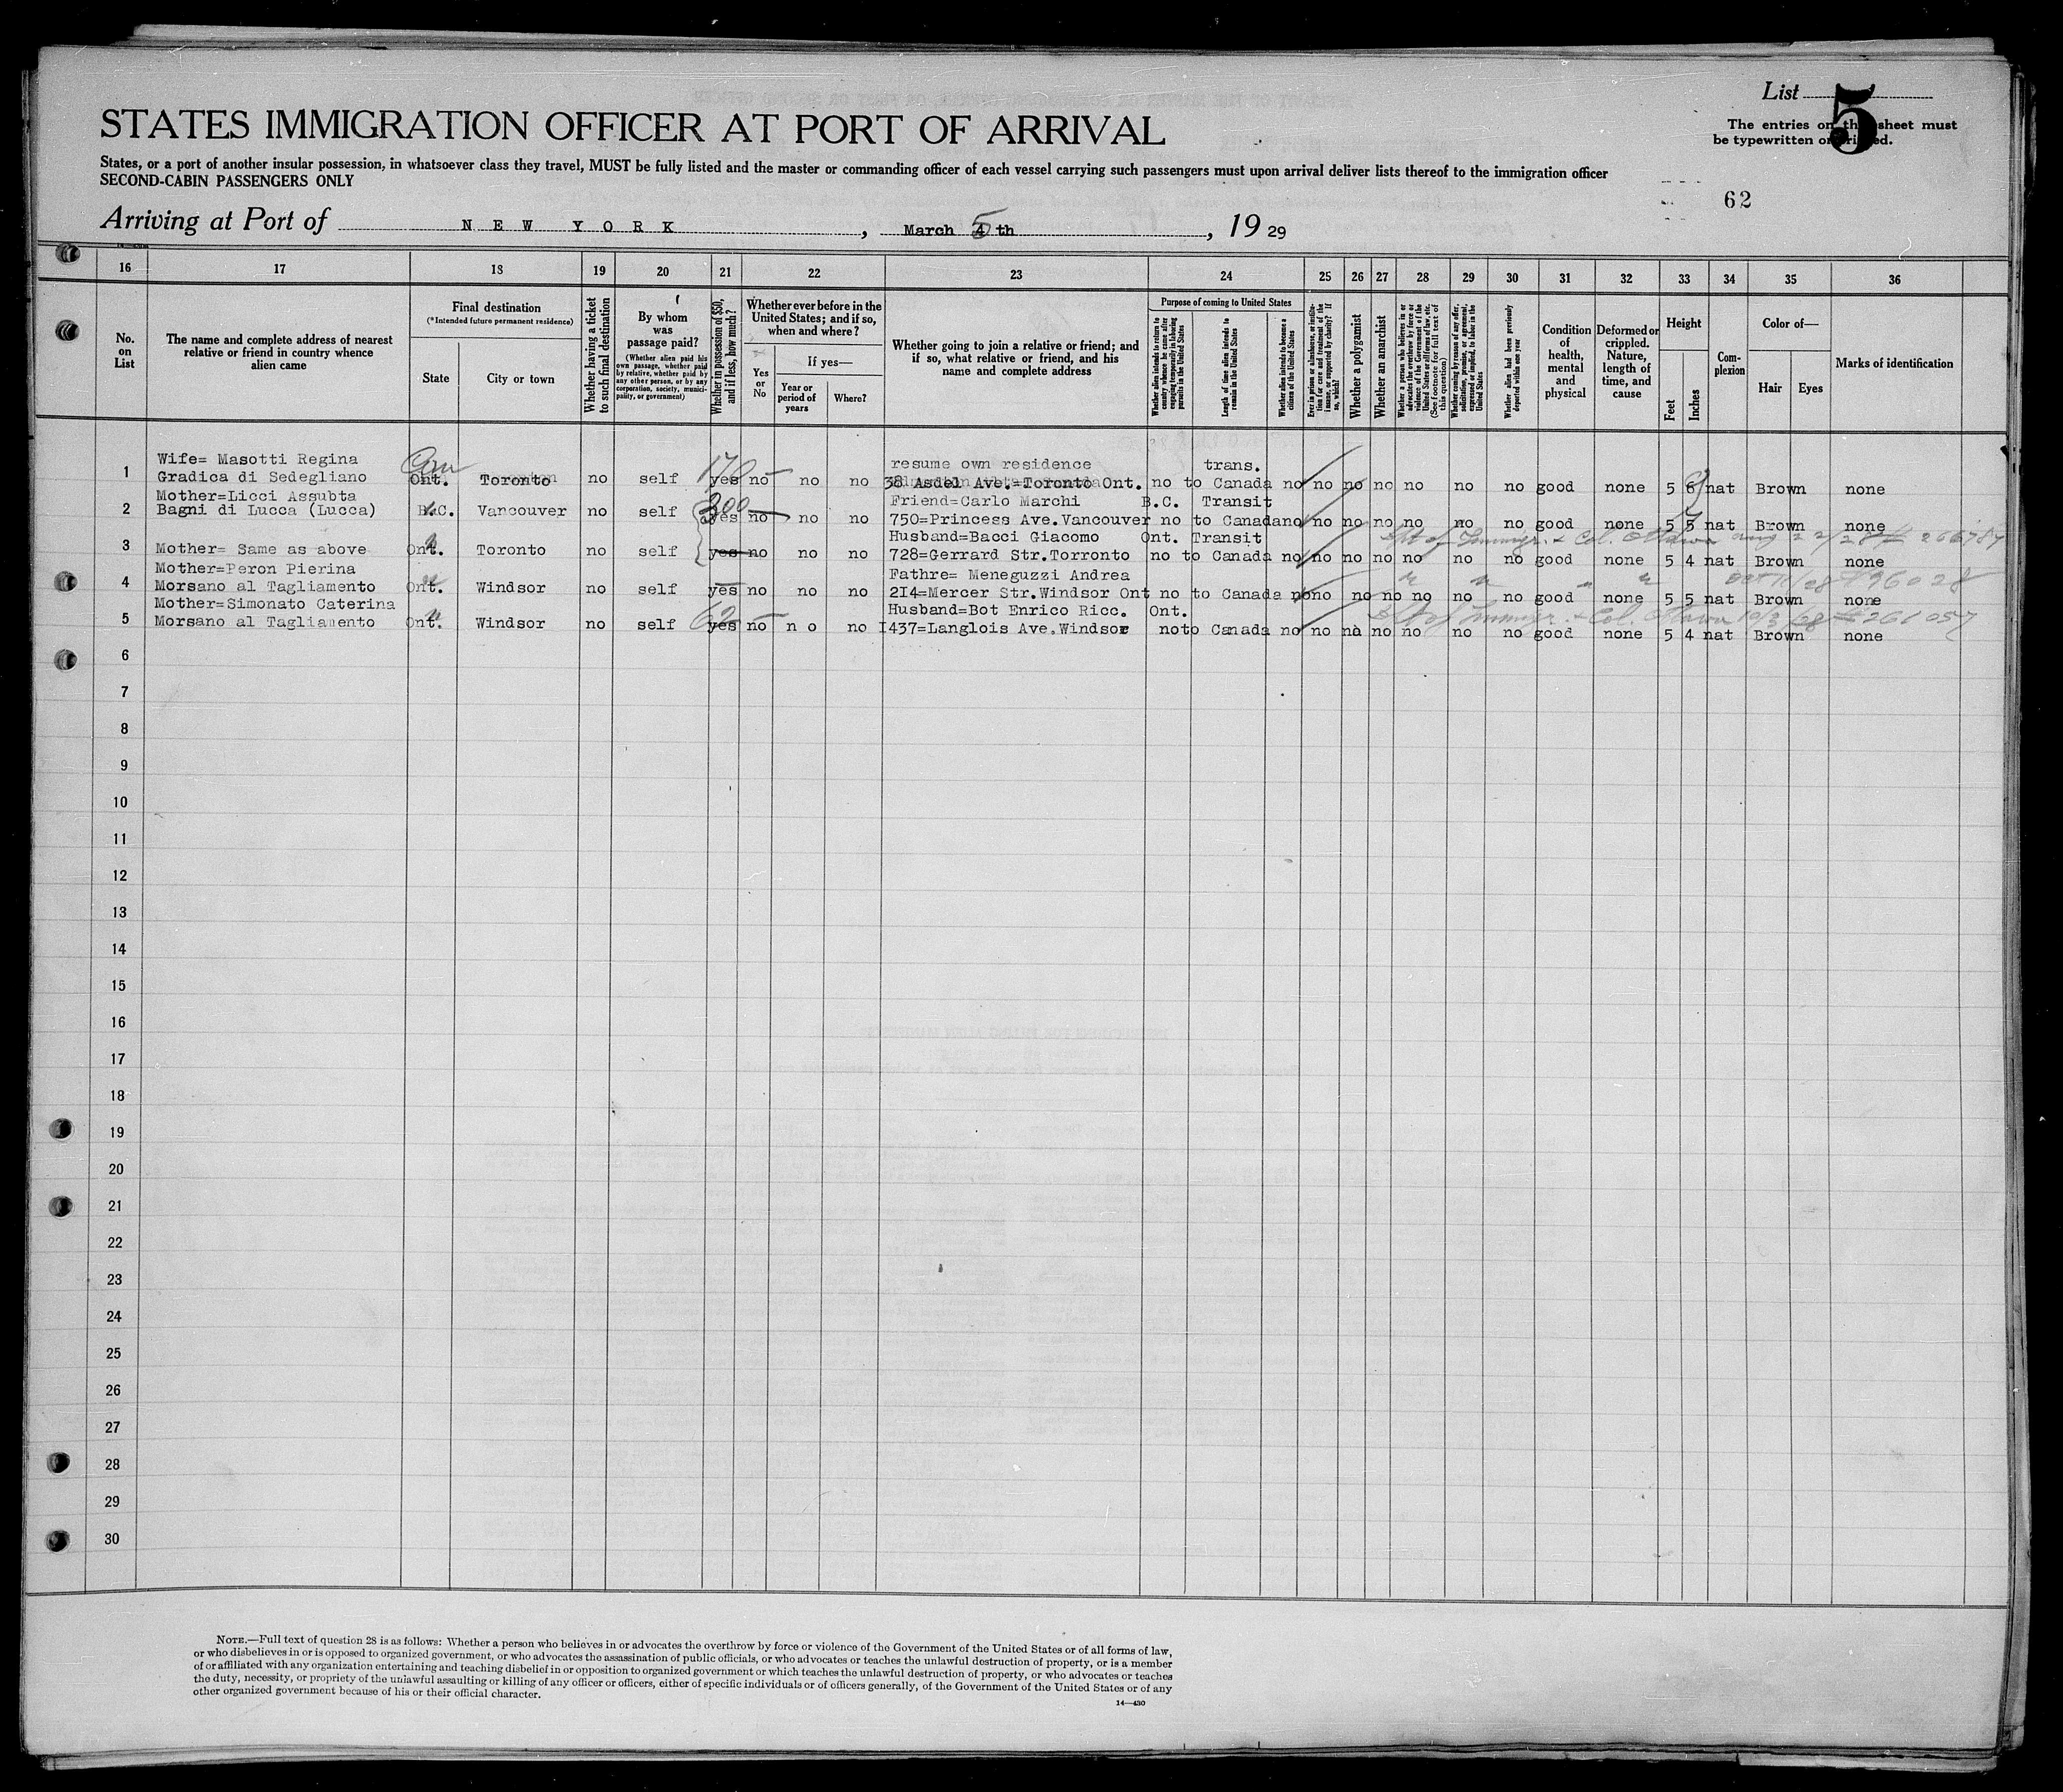 List 5
STATES IMMIGRATION OFFICER AT PORT OF ARRIVAL
The entries on this sheet must
be typewritten or printed.
States, or a port of another insular possession, in whatsoever class they travel, MUST be fully listed and the master or commanding officer of each vessel carrying such passengers must upon arrival deliver lists thereof to the immigration officer
SECOND-CABIN PASSENGERS ONLY
62
Arriving at Port of NEW YORK, March 5 th, 19 29
16 17 18 19 20 21 22 23 24 25 26 27 28 29 30 31 32 33 34 35 36
No. on List
The name and complete address of nearest relative or friend in country whence alien came
Final destination
(*Intended future permanent residence)
State
City or town
Whether having a ticket to such final destination
By whom was passage paid?
(Whether alien paid his own passage, whether paid by relative, whether paid by any other person, or by any corporation, society, municipality, or government)
Whether in possession of $50, and if less, how much?
Whether ever before in the United States; and if so, when and where?
Yes or No
If yes—
Year or period of years
Where?
Whether going to join a relative or friend; and if so, what relative or friend, and his name and complete address
Purpose of coming to United States
Whether alien intends to return to country whence he came after engaging temporarily in laboring pursuits in the United States
Length of time alien intends to remain in the United States
Whether alien intends to become a citizen of the United States
Ever in prison or almshouse, or institution for care and treatment of the insane, or supported by charity? If so, which?
Whether a polygamist
Whether an anarchist
Whether a person who believes in or advocates the overthrow by force or violence of the Government of the United States or all forms of law, etc. (See footnote for full text of this question)
Whether coming by reason of any offer, solicitation, promise, or agreement, expressed or implied, to labor in the United States
Whether alien had been previously deported within one year
Condition of health, mental and physical
Deformed or crippled. Nature, length of time, and cause
Height
Feet
Inches
Complexion
Color of—
Hair
Eyes
Marks of identification
Wife= Masotti Regina resume own residence trans.
1 Gradica di Sedegliano Ont. Toronto no self 170 yes no no no 38 Asdel Ave.=Toronto Ont. no to Canada no no no no no no no good none 5 nat Brown none
Mother=Licci Assubta Friend=Carlo Marchi B.C. Transit
2 Bagni di Lucca (Lucca) B.C. Vancouver no self 300 yes no no no 750=Princess Ave.Vancouver no to Canada no no no no no no no good none 5 5 nat Brown none
Husband=Bacci Giacomo Ont. Transit
Dept of Immigr. & Col. Ottawa Aug 22/28 # 266787
3 Mother= Same as above Ont. Toronto no self yes no no no 728=Gerrard Str.Torronto no to Canada no no no no no no no good none 5 4 nat Brown none
Mother=Peron Pierina Fathre= Meneguzzi Andrea
4 Morsano al Tagliamento Ont. Windsor no self yes no no no 2I4=Mercer Str.Windsor Ont no to Canada no no no no no no no good none 5 5 nat Brown none
Mother=Simonato Caterina Husband=Bot Enrico Ricc. Ont.
Dept of Immigr. & Col. Ottawa 10/3/28 # 261057
5 Morsano al Tagliamento Ont. Windsor no self 62 yes no n o no I437=Langlois Ave.Windsor no to Canada no no no no no no no good none 5 4 nat Brown none
6
7
8
9
10
11
12
13
14
15
16
17
18
19
20
21
22
23
24
25
26
27
28
29
30
NOTE.—Full text of question 28 is as follows: Whether a person who believes in or advocates the overthrow by force or violence of the Government of the United States or of all forms of law,
or who disbelieves in or is opposed to organized government, or who advocates the assassination of public officials, or who advocates or teaches the unlawful destruction of property, or is a member
of or affiliated with any organization entertaining and teaching disbelief in or opposition to organized government or which teaches the unlawful destruction of property, or who advocates or teaches
the duty, necessity, or propriety of the unlawful assaulting or killing of any officer or officers, either of specific individuals or of officers generally, of the Government of the United States or of any
other organized government because of his or their official character.
14—430